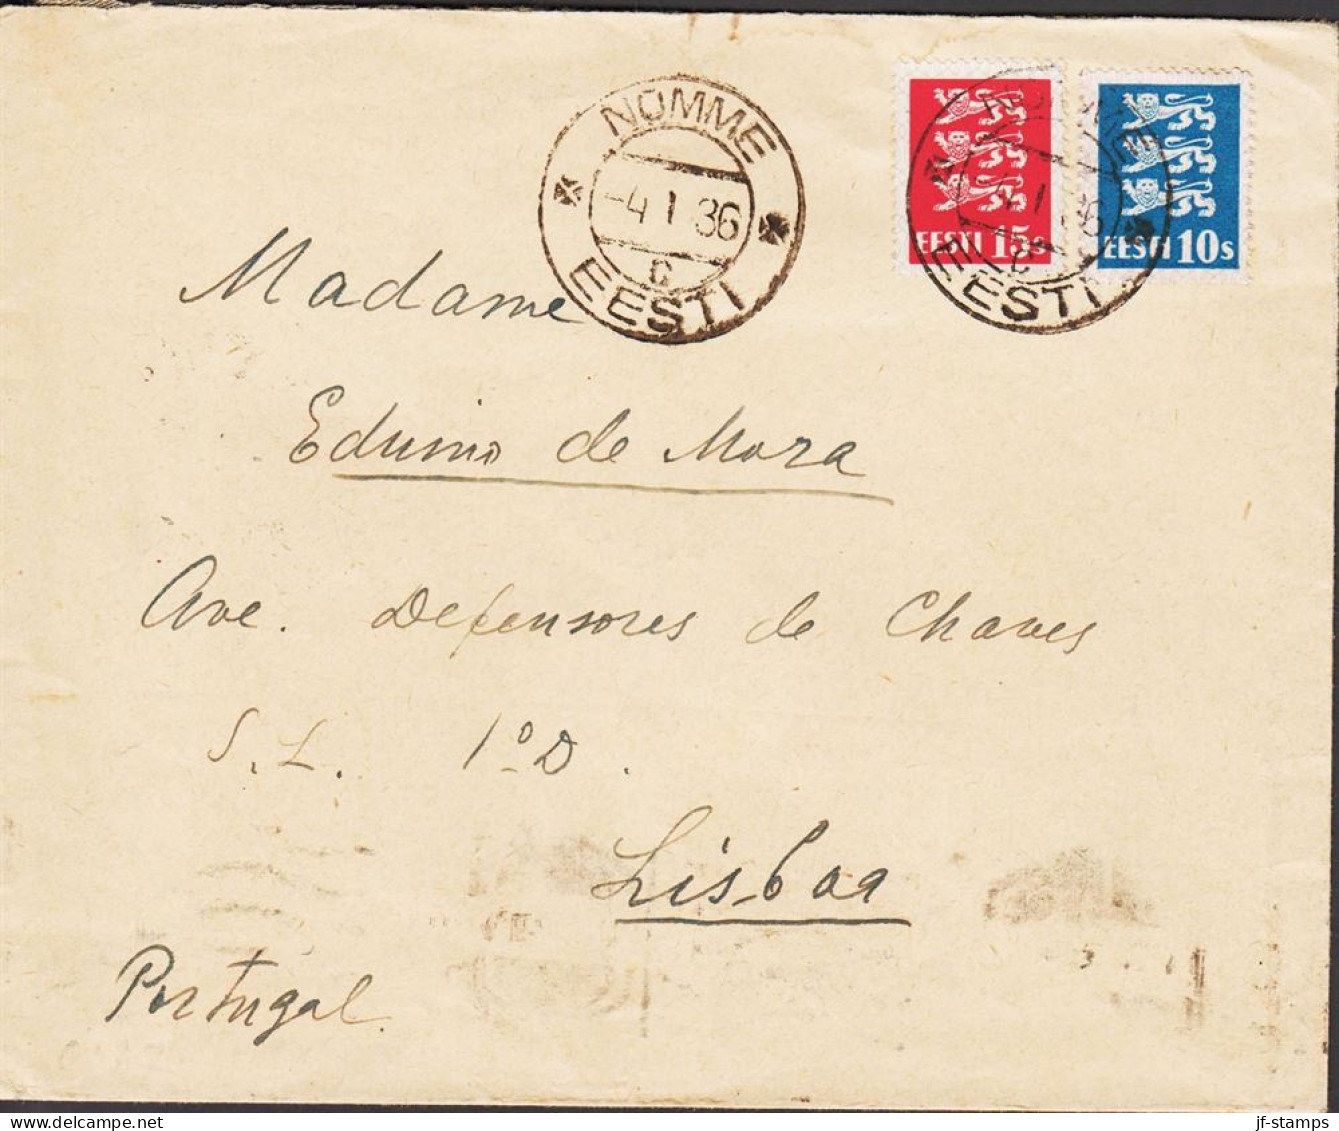 NÕMME
-4 I 36
C
EESTI
EESTI 15s
EESTI 10s
NÕMME
-4 I 36
C
EESTI
Madame
Eduino de Mora
Ave. Defensores de Chaves
S.L. 1º D.
Lisboa
Portugal
jf-stamps